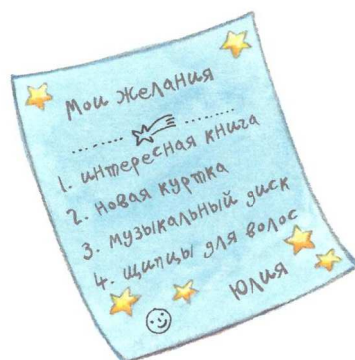 Мои желания
1. интересная книга
2. новая куртка
3. музыкальный диск
4. щипцы для волос
Юлия